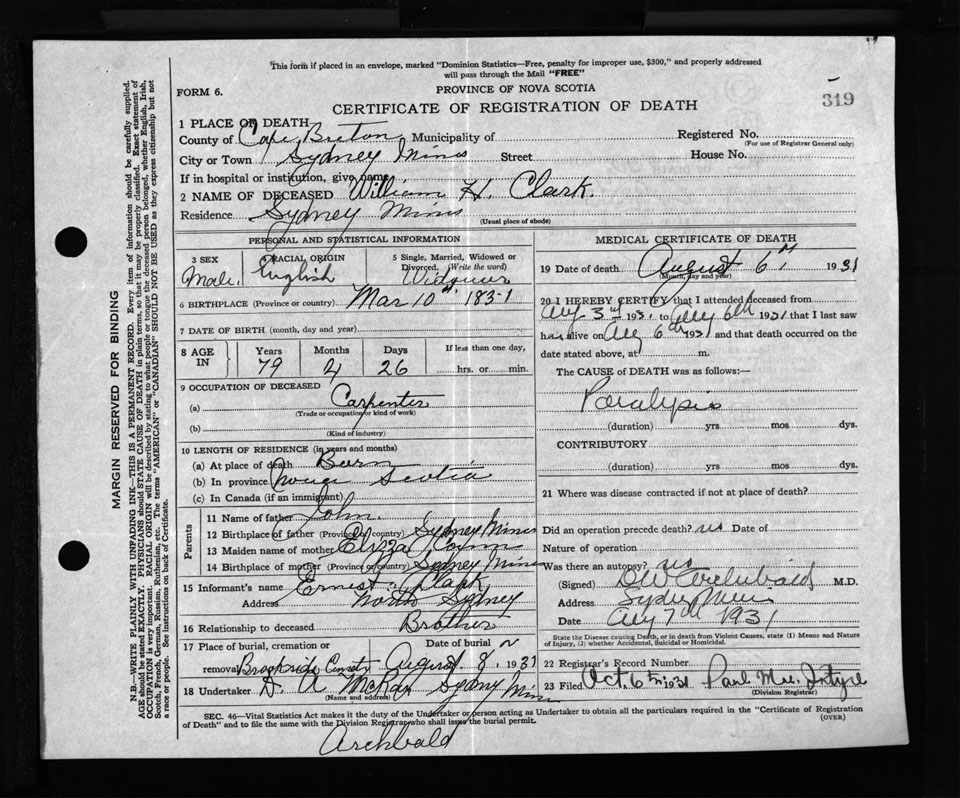 This form if placed in an envelope, marked "Dominion Statistics—Free, penalty for improper use, $300," and properly addressed
will pass through the Mail "FREE"
FORM 6.
PROVINCE OF NOVA SCOTIA
319
CERTIFICATE OF REGISTRATION OF DEATH
1 PLACE OF DEATH
County of Cape Breton Municipality of Registered No.
(For use of Registrar General only)
City or Town Sydney Mines Street House No.
If in hospital or institution, give name
2 NAME OF DECEASED William H. Clark.
Residence Sydney Mines
(Usual place of abode)
PERSONAL AND STATISTICAL INFORMATION
3 SEX Male.
RACIAL ORIGIN English
5 Single, Married, Widowed or
Divorced. (Write the word)
6 BIRTHPLACE (Province or country) Mar 10th
7 DATE OF BIRTH (month, day and year)
8 AGE IN Years Months Days If less than one day,
79 4 26 hrs. or min.
9 OCCUPATION OF DECEASED
(a) Carpenter
(Trade or occupation or kind of work)
(b)
(Kind of industry)
10 LENGTH OF RESIDENCE (in years and months)
(a) At place of death
(b) In province Scotia
(c) In Canada (if an immigrant)
Parents
11 Name of father John.
12 Birthplace of father (Province or country) Sydney Mines
13 Maiden name of mother Eliza
14 Birthplace of mother (Province or country) Sydney Mines
15 Informant's name Ernest Clark
Address North Sydney
16 Relationship to deceased Brother
17 Place of burial, cremation or Date of burial
removal August 8, 1931
18 Undertaker D. A. McKay Sydney Mines
(Name and address)
MEDICAL CERTIFICATE OF DEATH
19 Date of death August 6th 1931
(Month, day and year)
20 I HEREBY CERTIFY that I attended deceased from
Aug 3rd 1931 to Aug 6th 1931 that I last saw
h alive on Aug 6th 1931 and that death occurred on the
date stated above, at m.
The CAUSE OF DEATH was as follows:—
Paralysis
(duration) yrs mos dys.
CONTRIBUTORY
(duration) yrs. mos. dys.
21 Where was disease contracted if not at place of death?
Did an operation precede death? no Date of
Nature of operation
Was there an autopsy? no
(Signed) DW Archibald M.D.
Address Sydney Mines
Date Aug 7th 1931
State the Disease causing Death, or in death from Violent Causes, state (1) Means and Nature
of Injury, (2) whether Accidental, Suicidal or Homicidal.
22 Registrar's Record Number
23 Filed Oct. 6th 1931
(Division Registrar)
SEC. 46—Vital Statistics Act makes it the duty of the Undertaker or person acting as Undertaker to obtain all the particulars required in the "Certificate of Registration
of Death" and to file the same with the Division Registrar who shall issue the burial permit.
(OVER)
Archbald
MARGIN RESERVED FOR BINDING
N.B.—WRITE PLAINLY WITH UNFADING INK—THIS IS A PERMANENT RECORD. Every item of information should be carefully supplied.
AGE should be stated EXACTLY. PHYSICIANS should STATE CAUSE OF DEATH in plain terms, so that it may be properly classified. Exact statement of
OCCUPATION is very important. RACIAL ORIGIN will be described by stating to what people or tongue the deceased person belonged, whether English, Irish,
Scotch, French, German, Russian, Ruthenian, etc. The terms "AMERICAN" or "CANADIAN" SHOULD NOT BE USED as they express citizenship but not
a race or people. See instructions on back of Certificate.